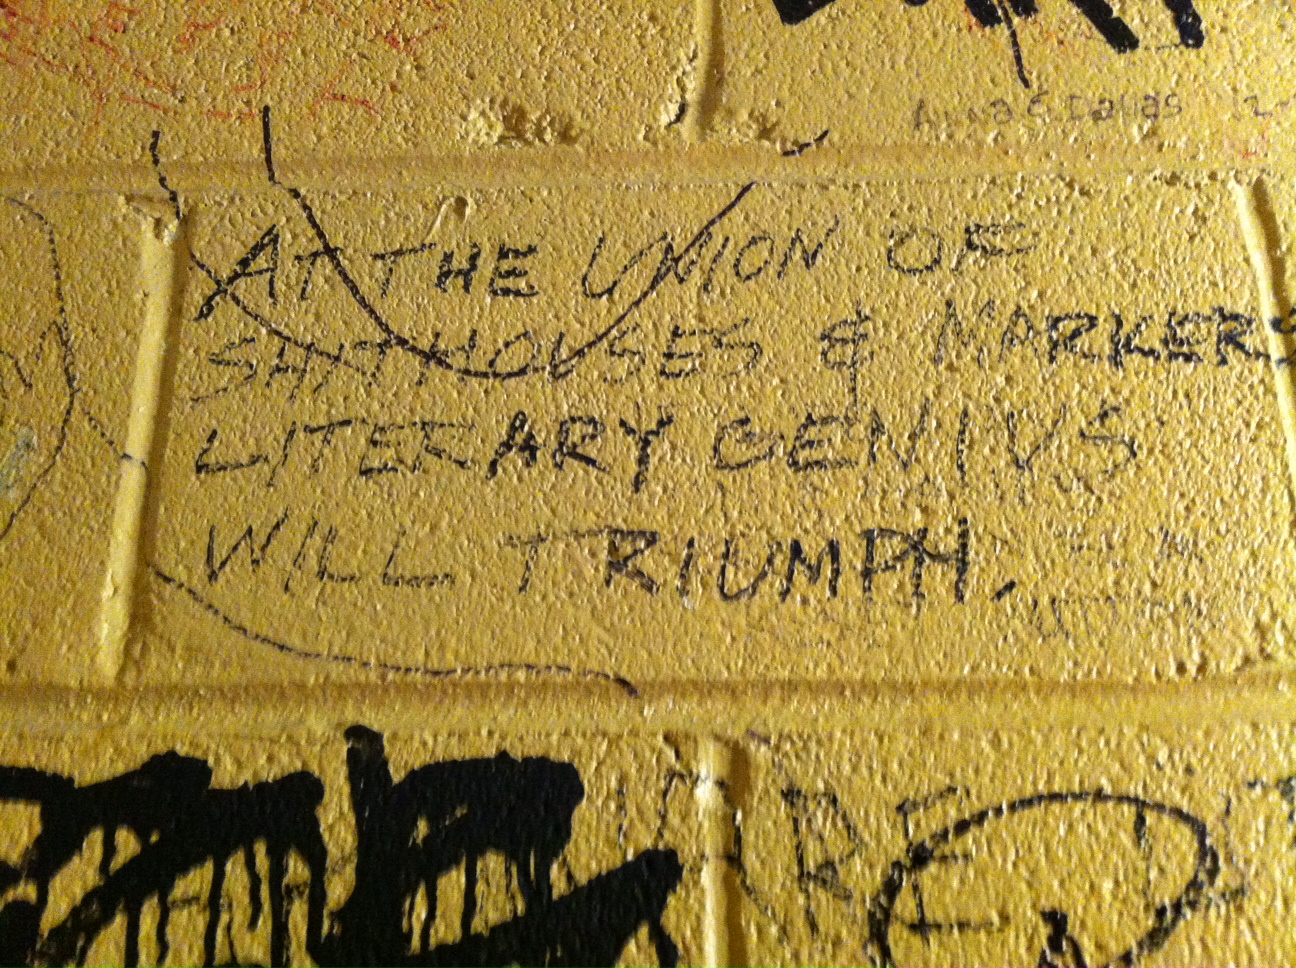 Anna & Dallas
AT THE UNION OF
SHITHOUSES & MARKERS
LITERARY GENIUS
WILL TRIUMPH.